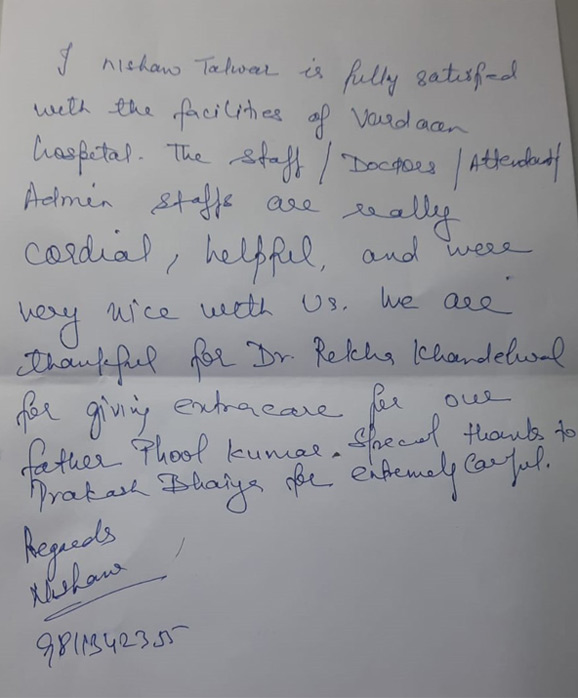 I Nishaw Talwar is fully satisfied
with the facilities of Vardaan
hospital. The staff / Doctors / Attendant/
Admin staffs are really
cordial, helpful, and were
very nice with us. We are
thankful for Dr. Rekha Khandelwal
for giving extracare for our
father Phool Kumar. Special thanks to
Prakash Bhaiya for extremely careful.
Regards
Nishaw